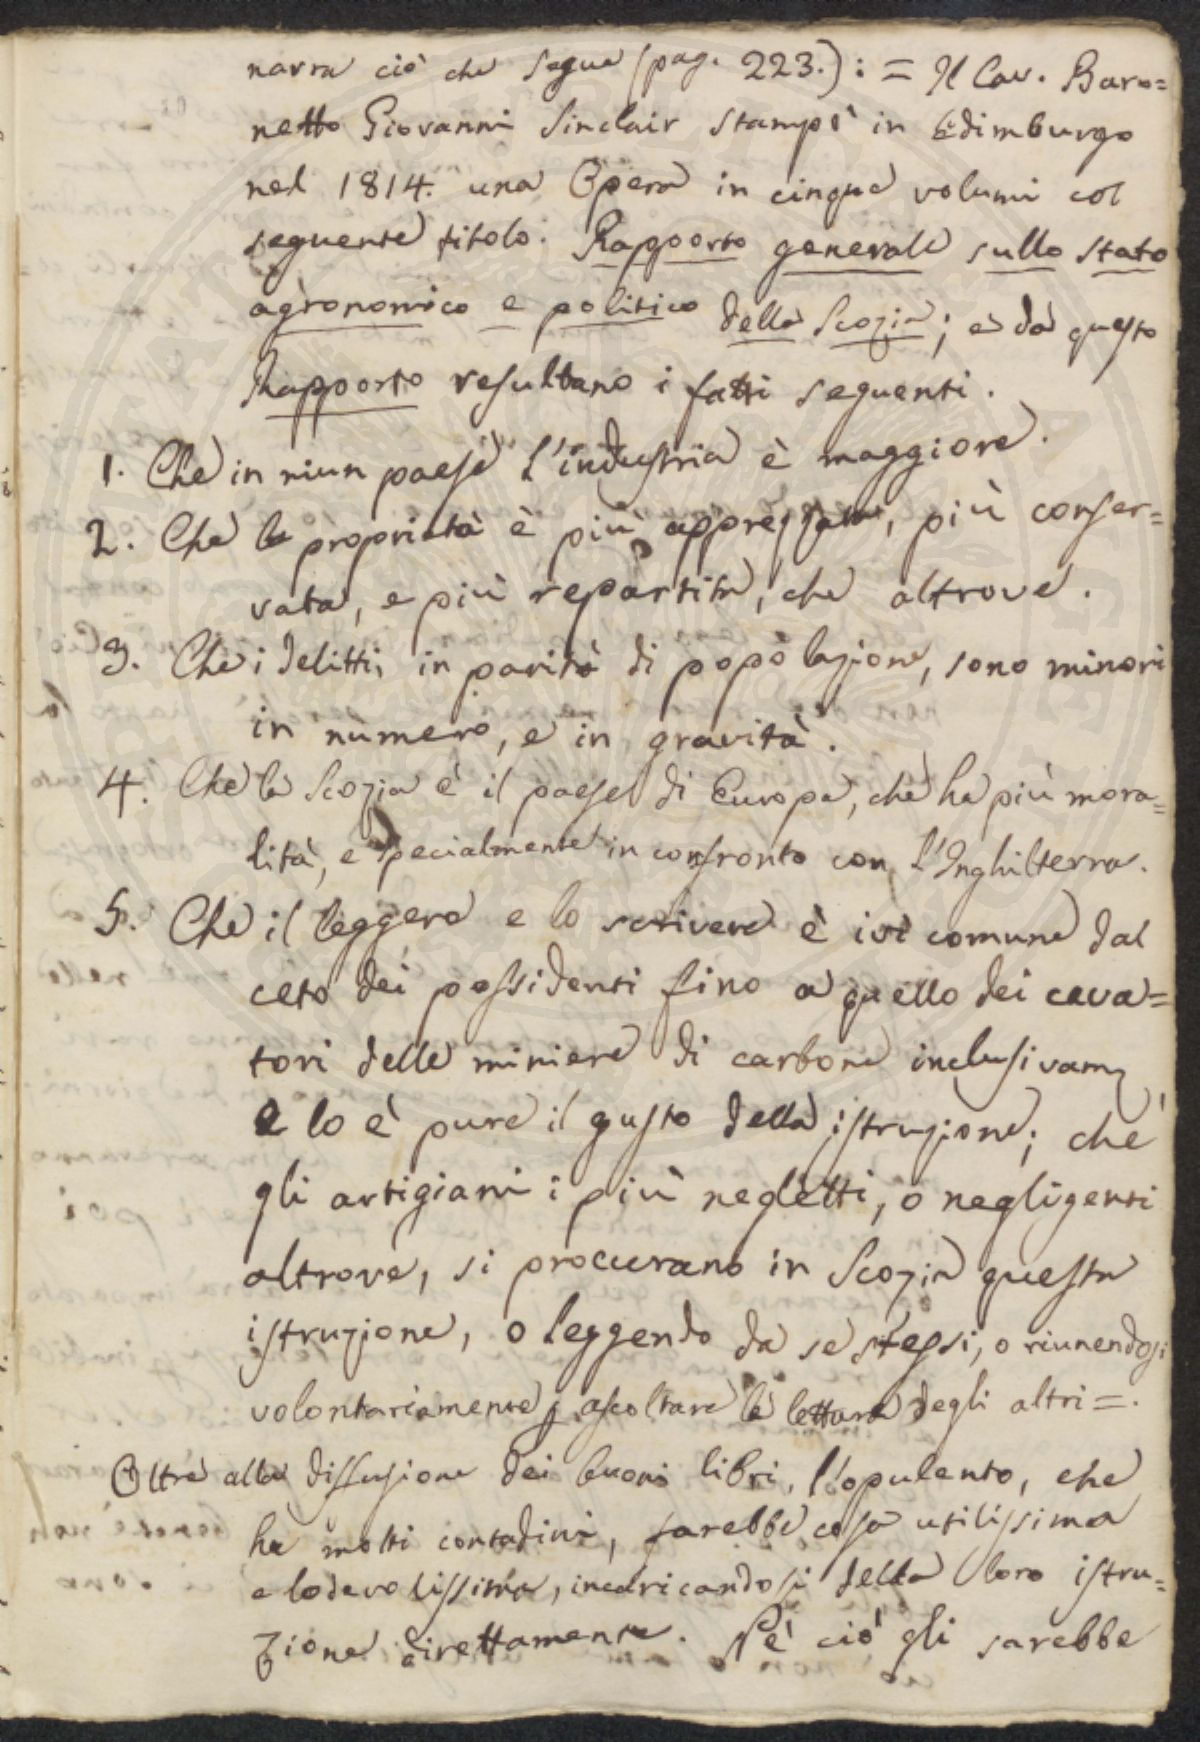 narra ciò che segue (pag. 223.): = Il Cav. Baro=
netto Giovanni Sinclair stampò in Edimburgo
nel 1814. una Opera in cinque volumi col
seguente titolo: Rapporto generale sullo stato
agronomico e politico della Scozia; e da questo
Rapporto resultano i fatti seguenti.
1. Che in niun paese l'industria è maggiore.
2. Che la proprietà è più apprezzata, più conser=
vata, e più repartita, che altrove.
3. Che i delitti, in parità di popolazione, sono minori
in numero, e in gravità.
4. Che la Scozia è il paese di Europa, che ha più mora=
lità, e specialmente in confronto con l'Inghilterra.
5. Che il leggere e lo scrivere è ivi comune dal
ceto dei possidenti fino a quello dei cava=
tori delle miniere di carbone inclusivam.
e lo è pure il gusto della istruzione; che
gli artigiani i più negletti, o negligenti
altrove, si procurano in Scozia questa
istruzione, o leggendo da se stessi, o riunendosi
volontariamente p. ascoltare la lettura degli altri=.
Oltre alla diffusione dei buoni libri, l'opulento, che
ha molti contadini, farebbe cosa utilissima
e lodevolissima, incaricandosi della loro istru=
zione direttamente. Nè ciò gli sarebbe